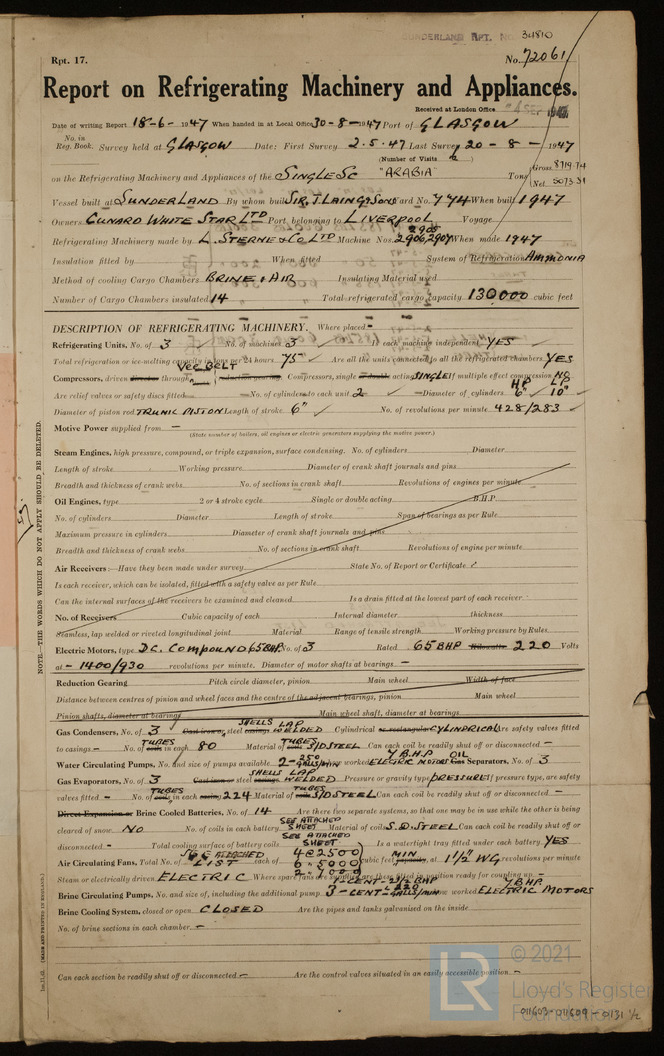 SUNDERLAND RPT. No. 34810
Rpt. 17.
No. 72061
Report on Refrigerating Machinery and Appliances.
Received at London Office
Date of writing Report 18-6-1947 When handed in at Local Office 30-8-1947 Port of GLASGOW
No. in Reg. Book. Survey held at GLASGOW Date: First Survey 2.5.47 Last Survey 20-8-1947
(Number of Visits 2)
on the Refrigerating Machinery and Appliances of the SINGLE SC "ARABIA" Tons Gross 8719.74 Net 5073.31
Vessel built at SUNDERLAND By whom built SIR J. LAING & SONS Yard No. 774 When built 1947
Owners CUNARD WHITE STAR LTD Port belonging to LIVERPOOL Voyage
Refrigerating Machinery made by L. STERNE & CO LTD Machine Nos. 2905 2906 2907 When made 1947
Insulation fitted by When fitted System of Refrigeration AMMONIA
Method of cooling Cargo Chambers BRINE & AIR Insulating Material used
Number of Cargo Chambers insulated 14 Total refrigerated cargo capacity 130,000 cubic feet
DESCRIPTION OF REFRIGERATING MACHINERY. Where placed -
Refrigerating Units, No. of 3 No. of machines 3 Is each machine independent YES
Total refrigeration or ice-melting capacity in tons per 24 hours 75 Are all the units connected to all the refrigerated chambers YES
Compressors, driven direct or through VEE BELT reduction gearing. Compressors, single or double acting SINGLE If multiple effect compression NO
Are relief valves or safety discs fitted No. of cylinders to each unit 2 Diameter of cylinders HP 6" LP 10"
Diameter of piston rod TRUNK PISTON Length of stroke 6" No. of revolutions per minute 428/283
Motive Power supplied from -
(State number of boilers, oil engines or electric generators supplying the motive power.)
Steam Engines, high pressure, compound, or triple expansion, surface condensing. No. of cylinders Diameter
Length of stroke Working pressure Diameter of crank shaft journals and pins
Breadth and thickness of crank webs No. of sections in crank shaft Revolutions of engines per minute
Oil Engines, type 2 or 4 stroke cycle Single or double acting B.H.P.
No. of cylinders Diameter Length of stroke Span of bearings as per Rule
Maximum pressure in cylinders Diameter of crank shaft journals and pins
Breadth and thickness of crank webs No. of sections in crank shaft Revolutions of engine per minute
Air Receivers:—Have they been made under survey State No. of Report or Certificate
Is each receiver, which can be isolated, fitted with a safety valve as per Rule
Can the internal surfaces of the receivers be examined and cleaned Is a drain fitted at the lowest part of each receiver
No. of Receivers Cubic capacity of each Internal diameter thickness
Seamless, lap welded or riveted longitudinal joint Material Range of tensile strength Working pressure by Rules
Electric Motors, type D.C. COMPOUND 65BHP No. of 3 Rated 65 BHP Kilowatts 220 Volts
at - 1400/930 revolutions per minute. Diameter of motor shafts at bearings -
Reduction Gearing Pitch circle diameter, pinion Main wheel Width of face
Distance between centres of pinion and wheel faces and the centre of the adjacent bearings, pinion Main wheel
Pinion shafts, diameter at bearings Main wheel shaft, diameter at bearings
Gas Condensers, No. of 3 Cast iron or steel casings SHELLS LAP WELDED Cylindrical or rectangular CYLINDRICAL Are safety valves fitted
to casings - No. of coils TUBES in each 80 Material of coils TUBES S/D STEEL Can each coil be readily shut off or disconnected -
Water Circulating Pumps, No. and size of pumps available 2-250 GALLS/MIN how worked 7 B.H.P ELECTRIC MOTORS Gas OIL Separators, No. of 3
Gas Evaporators, No. of 3 Cast iron or steel casings SHELLS LAP WELDED Pressure or gravity type PRESSURE If pressure type, are safety
valves fitted - No. of coils TUBES in each casing 224 Material of coils TUBES S/D STEEL Can each coil be readily shut off or disconnected -
Direct Expansion or Brine Cooled Batteries, No. of 14 Are there two separate systems, so that one may be in use while the other is being
cleared of snow NO No. of coils in each battery SEE ATTACHED SHEET Material of coils S.D. STEEL Can each coil be readily shut off or
disconnected - Total cooling surface of battery coils SEE ATTACHED SHEET Is a watertight tray fitted under each battery YES
Air Circulating Fans, Total No. of SEE ATTACHED LIST each of 4 @ 2500 6 - 5000 2 - 7000 cubic feet MIN at 1½" WG revolutions per minute
Steam or electrically driven ELECTRIC Where spare fans are supplied are these fitted in position ready for coupling up -
Brine Circulating Pumps, No. and size of, including the additional pump 3-CENT- 220 GALLS/MIN how worked 7 B.H.P. ELECTRIC MOTORS
Brine Cooling System, closed or open CLOSED Are the pipes and tanks galvanised on the inside
No. of brine sections in each chamber -
Can each section be readily shut off or disconnected - Are the control valves situated in an easily accessible position -
NOTE.—THE WORDS WHICH DO NOT APPLY SHOULD BE DELETED.
(MADE AND PRINTED IN ENGLAND.)
LR
© 2021
Lloyd's Register
Foundation
011603-011609-0131 ½